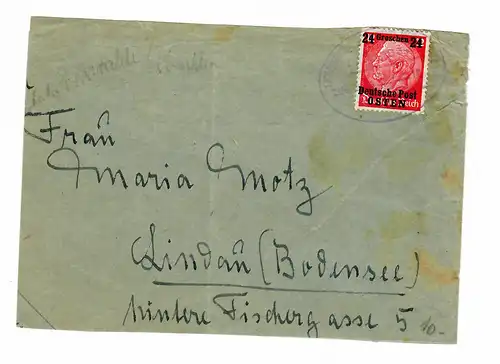 24 Groschen 24
Deutsche Post
OSTEN
Frau
Maria Motz
Lindau (Bodensee)
hintere Fischergasse 5